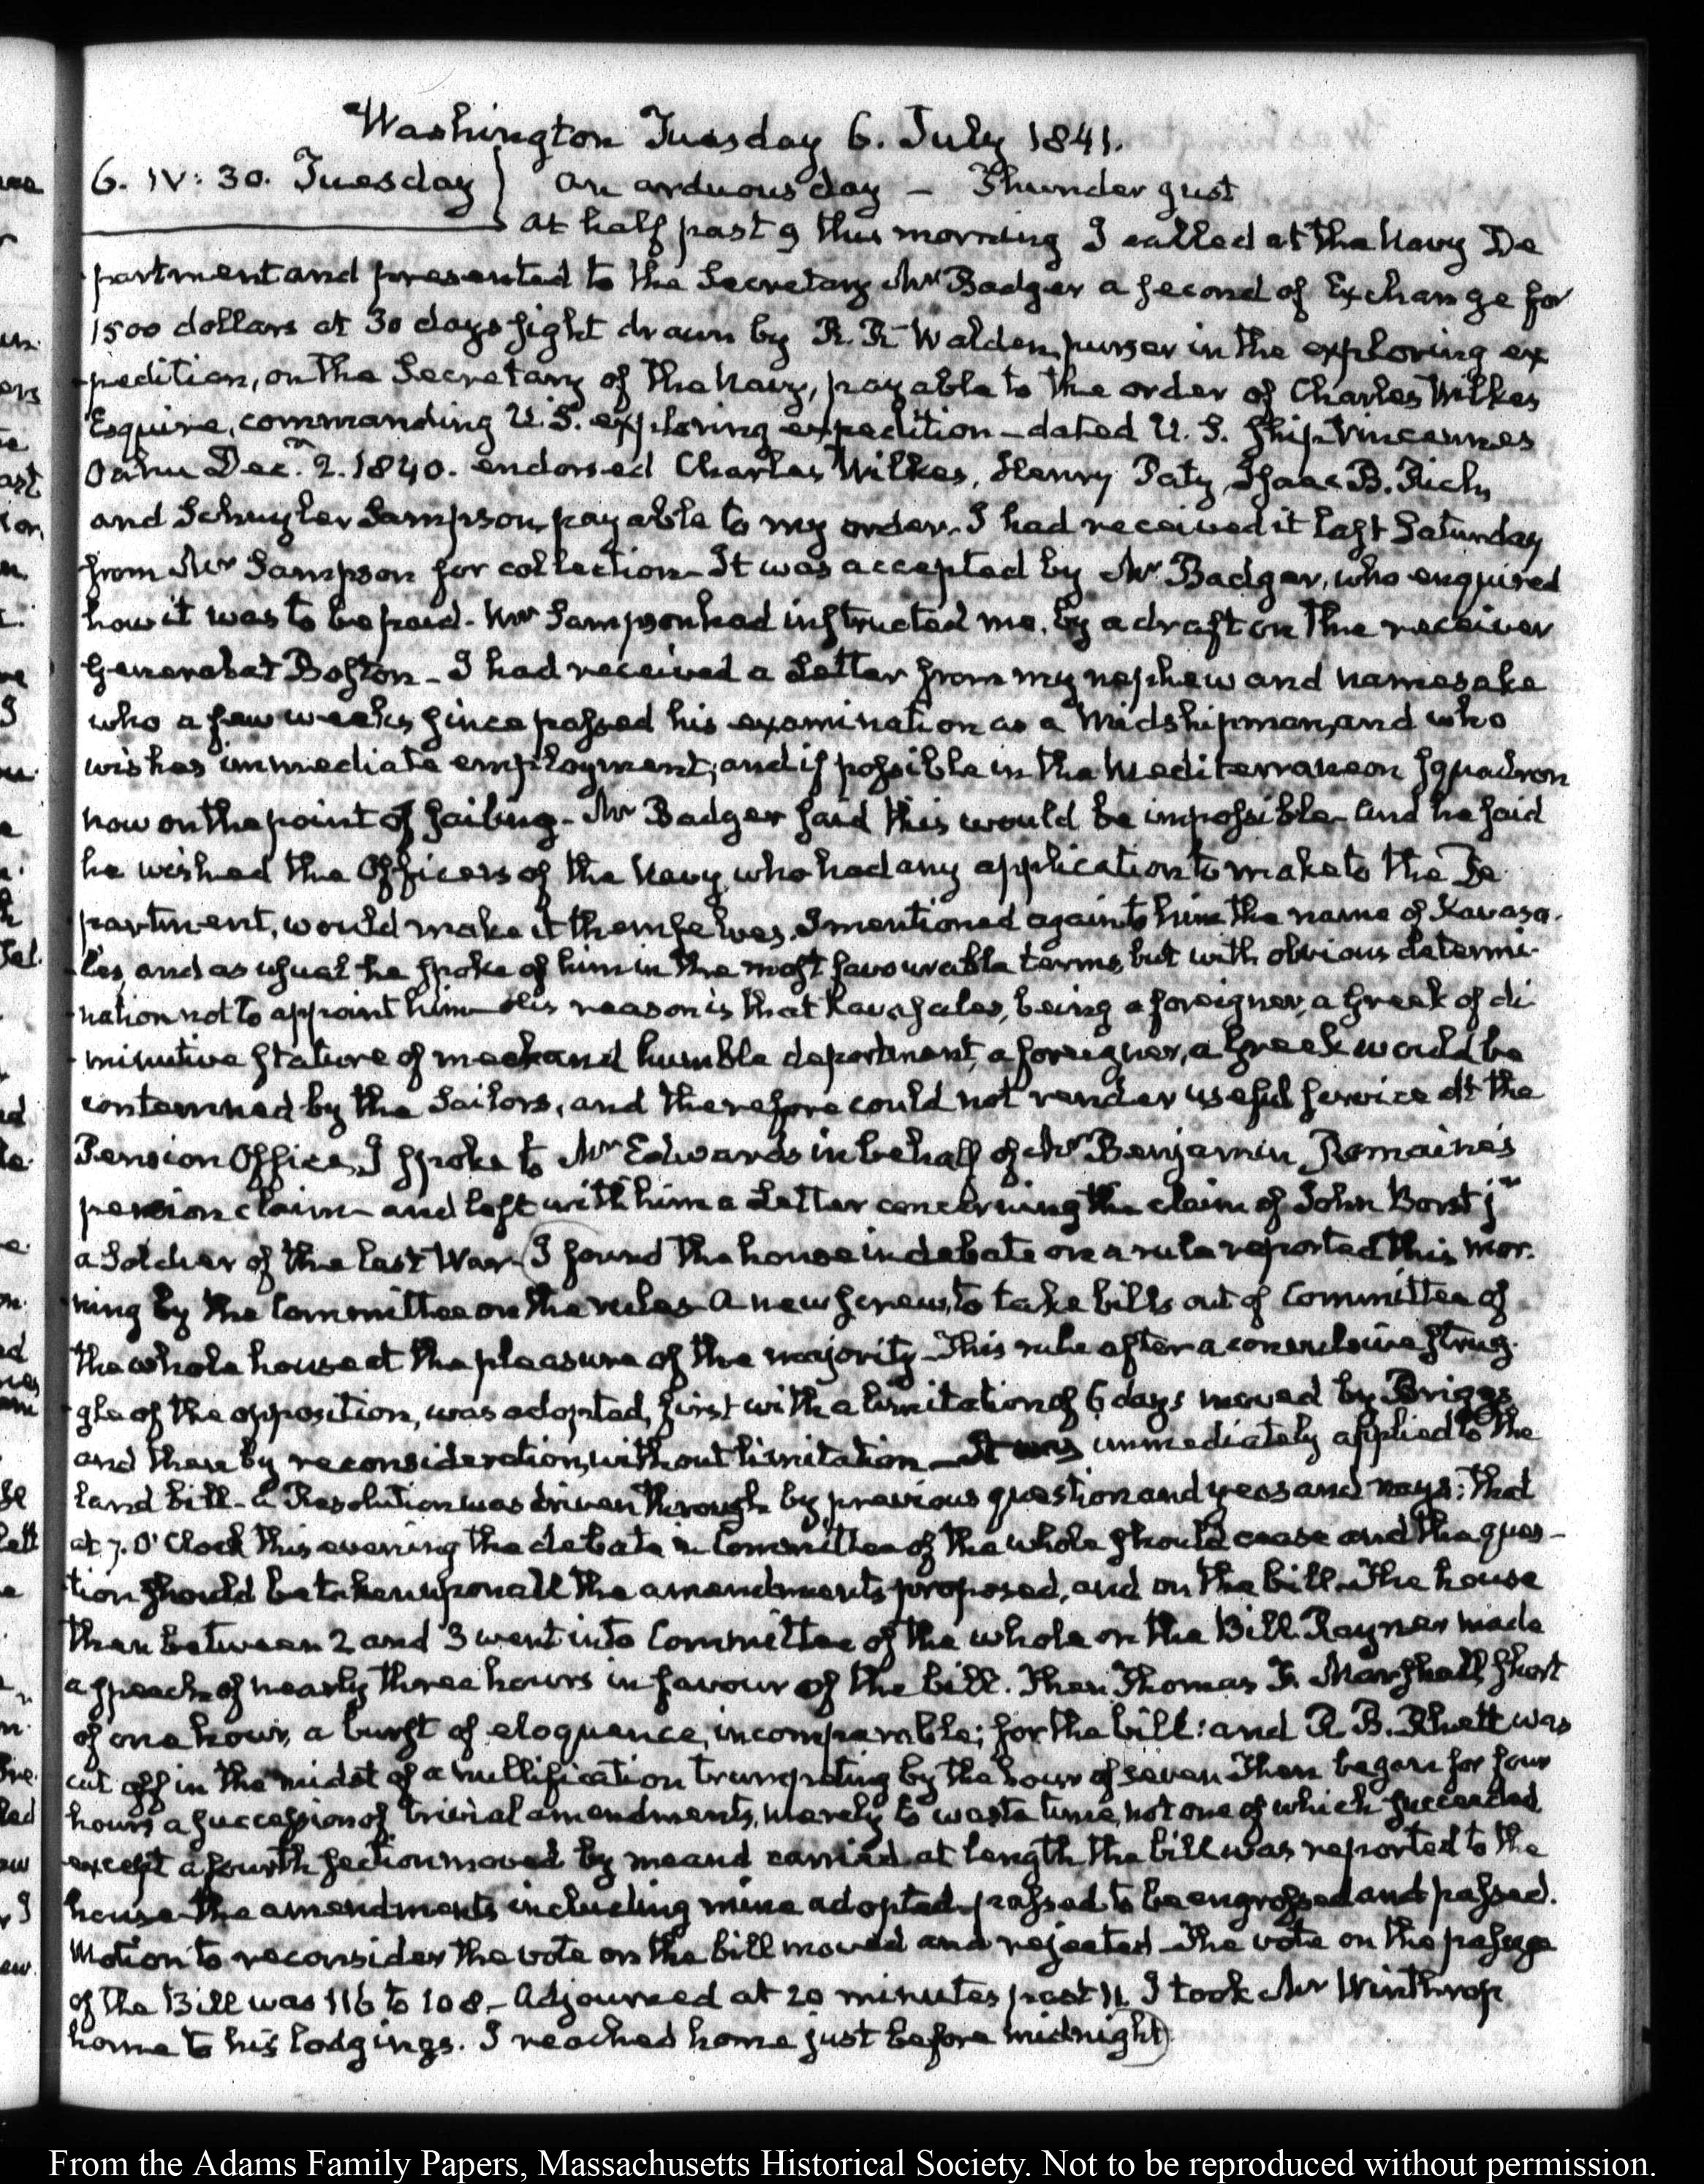 Washington Tuesday 6. July 1841.
6. IV: 30. Tuesday } An arduous day — Thunder gust
At half past 9 this morning I called at the Navy De
partment and presented to the Secretary Mr Badger a second of Exchange for
1500 dollars at 30 days sight drawn by R. R. Waldron, purser in the exploring ex
pedition, on the Secretary of the Navy, payable to the order of Charles Wilkes
Esquire, commanding U.S. exploring expedition — dated U.S. Ship Vincennes
Oahu Decr. 2. 1840. endorsed Charles Wilkes, Henry Paty, Isaac B. Rich,
and Schuyler Sampson, payable to my order. I had received it last Saturday
from Mr Sampson for collection — It was accepted by Mr Badger, who enquired
how it was to be paid. Mr Sampson had instructed me, by a draft on the receiver
General at Boston — I had received a Letter from my nephew and namesake
who a few weeks since passed his examination as a Midshipman, and who
wishes immediate employment, and if possible in the Mediterranean squadron
now on the point of sailing — Mr Badger said this would be impossible and he said
he wished the Officers of the Navy who had any application to make to the De
partment, would make it themselves. I mentioned again to him the name of Kavasa-
les, and as usual he spoke of him in the most favourable terms, but with obvious determi-
nation not to appoint him — His reason is that Kavasales, being a foreigner, a Greek of di
minutive stature of meek and humble deportment, a foreigner, a Greek would be
contemned by the Sailors, and therefore could not render useful service At the
Pension Office, I spoke to Mr Edwards in behalf of Mr Benjamin Romaine's
pension claim — and left with him a Letter concerning the claim of John Borst jr
a Soldier of the last War — (I found the house in debate on a rule reported this mor-
ning by the Committee on the rules — a new screw, to take bills out of Committee of
the whole house at the pleasure of the majority — This rule after a convulsive strug-
gle of the opposition, was adopted, first with a limitation of 6 days moved by Briggs
and then by reconsideration, without limitation — It was immediately applied to the
land bill — A Resolution was driven through by previous question and yeas and nays: that
at 7. O'Clock this evening the debate in Committee of the whole should cease and the ques-
tion should be taken upon all the amendments proposed, and on the bill. The house
then between 2 and 3 went into Committee of the whole on the Bill. Rayner made
a speech of nearly three hours in favour of the bill. Then Thomas F. Marshall, short
of one hour, a burst of eloquence, incomparable; for the bill: and R. B. Rhett was
cut off in the midst of a nullification trumpeting by the hour of seven. Then began for four
hours a succession of trivial amendments, merely to waste time, not one of which succeeded,
except a fourth section moved by me and carried at length the bill was reported to the
house the amendments including mine adopted — passed to be engrossed and passed.
Motion to reconsider the vote on the bill moved and rejected — The vote on the passage
of the Bill was 116 to 108 — Adjourned at 20 minutes past 11. I took Mr Winthrop
home to his lodgings. I reached home just before midnight)
From the Adams Family Papers, Massachusetts Historical Society. Not to be reproduced without permission.